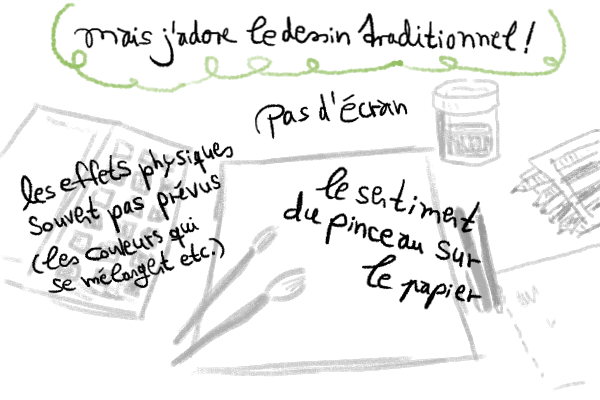 mais j'adore le dessin traditionnel !
pas d'écran
les effets physiques
souvent pas prévus
(les couleurs qui
se mélangent etc.)
le sentiment
du pinceau sur
le papier